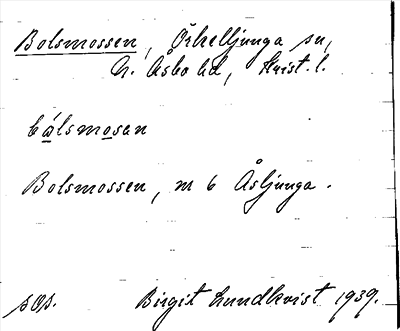 Bolsmossen, Örkelljunga sn,
N. Åsbo hd, Krist. l.
bálsmosen
Bolsmossen, m 6 Åsljunga.
sop. Birgit Lundkvist 1939.